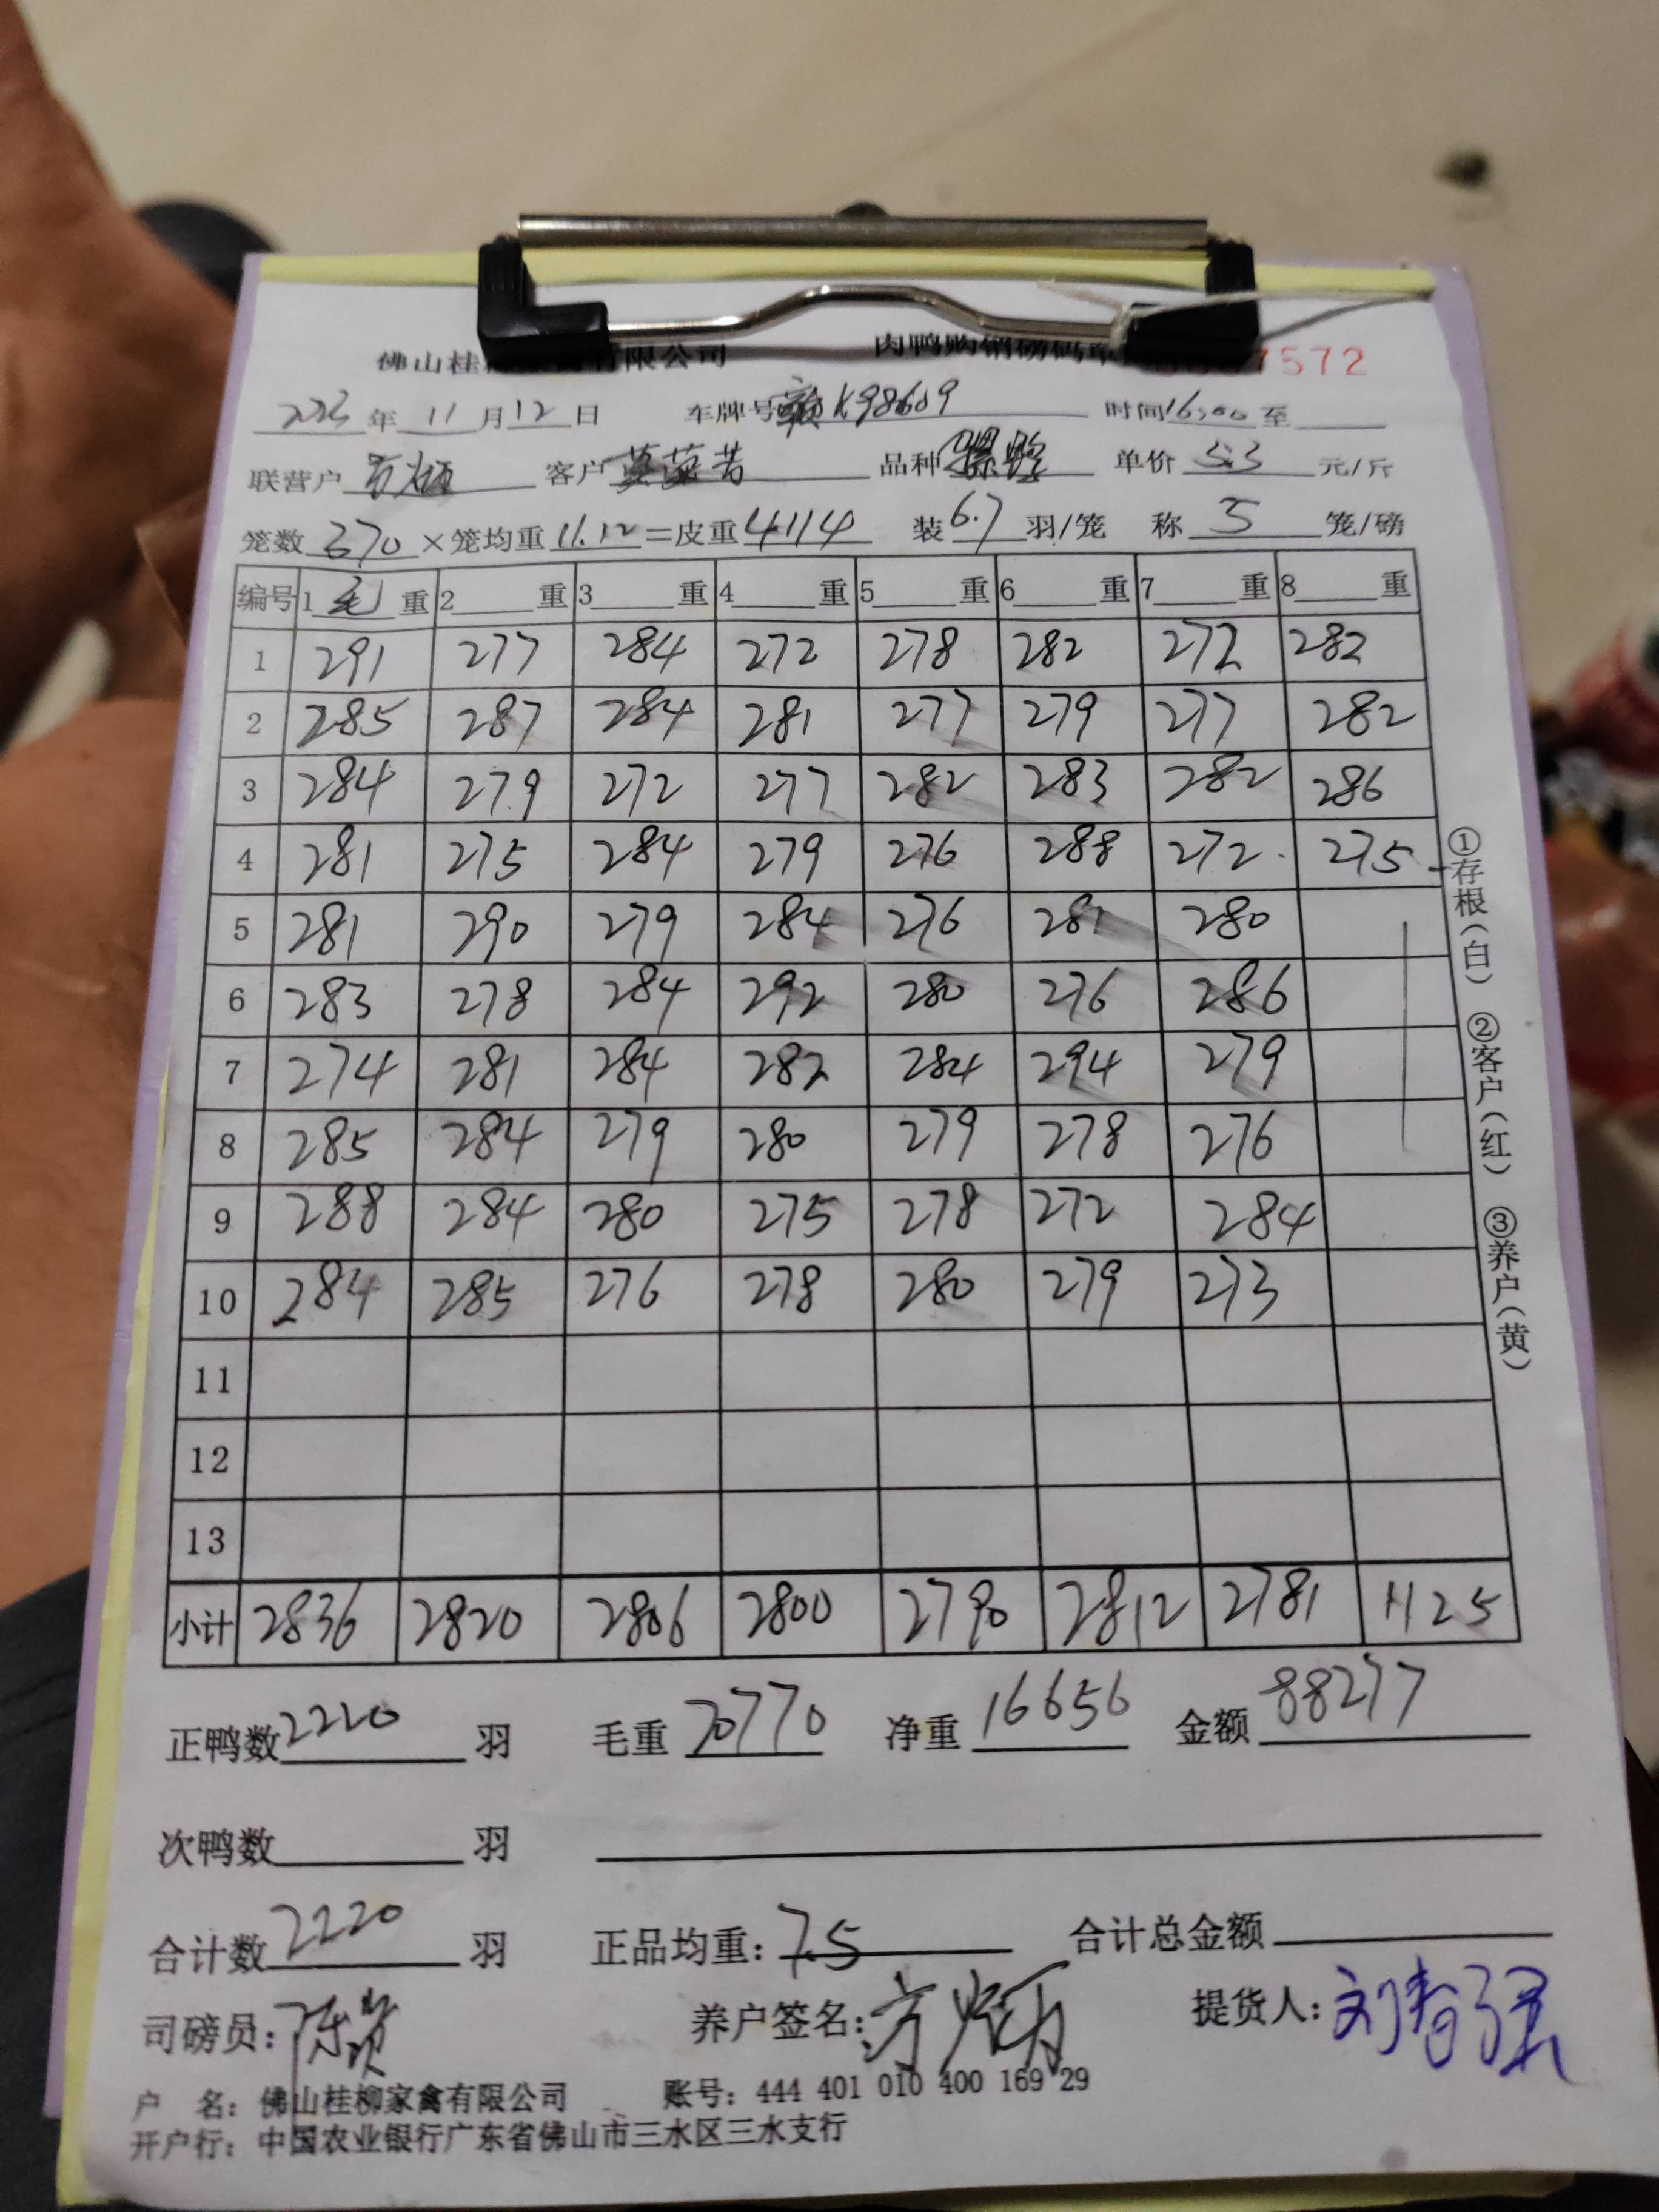 佛山桂 有限公司 肉鸭购销磅码单 7572
2023年 11 月 12 日 车牌号 K98609 时间 16:00 至
联营户 方炳 客户 品种 单价 5.3 元/斤
笼数 370 ×笼均重 11.12 =皮重 4114 装 6.7 羽/笼 称 5 笼/磅
编号 1 毛 重 2 重 3 重 4 重 5 重 6 重 7 重 8 重
1 291 277 284 272 278 282 272 282
2 285 287 284 281 277 279 277 282
3 284 279 272 277 282 283 282 286
4 281 275 284 279 276 288 272 275
5 281 290 279 284 276 281 280
6 283 278 284 292 280 276 286
7 274 281 284 282 284 294 279
8 285 284 279 280 279 278 276
9 288 284 280 275 278 272 284
10 284 285 276 278 280 279 273
11
12
13
小计 2836 2820 2806 2800 2790 2812 2781 1125
①存根(白) ②客户(红) ③养户(黄)
正鸭数 2220 羽 毛重 20770 净重 16656 金额 88277
次鸭数 羽
合计数 2220 羽 正品均重: 7.5 合计总金额
司磅员: 陈 养户签名: 方炳 提货人: 刘春强
户 名: 佛山桂柳家禽有限公司 账号: 444 401 010 400 169 29
开户行: 中国农业银行广东省佛山市三水区三水支行